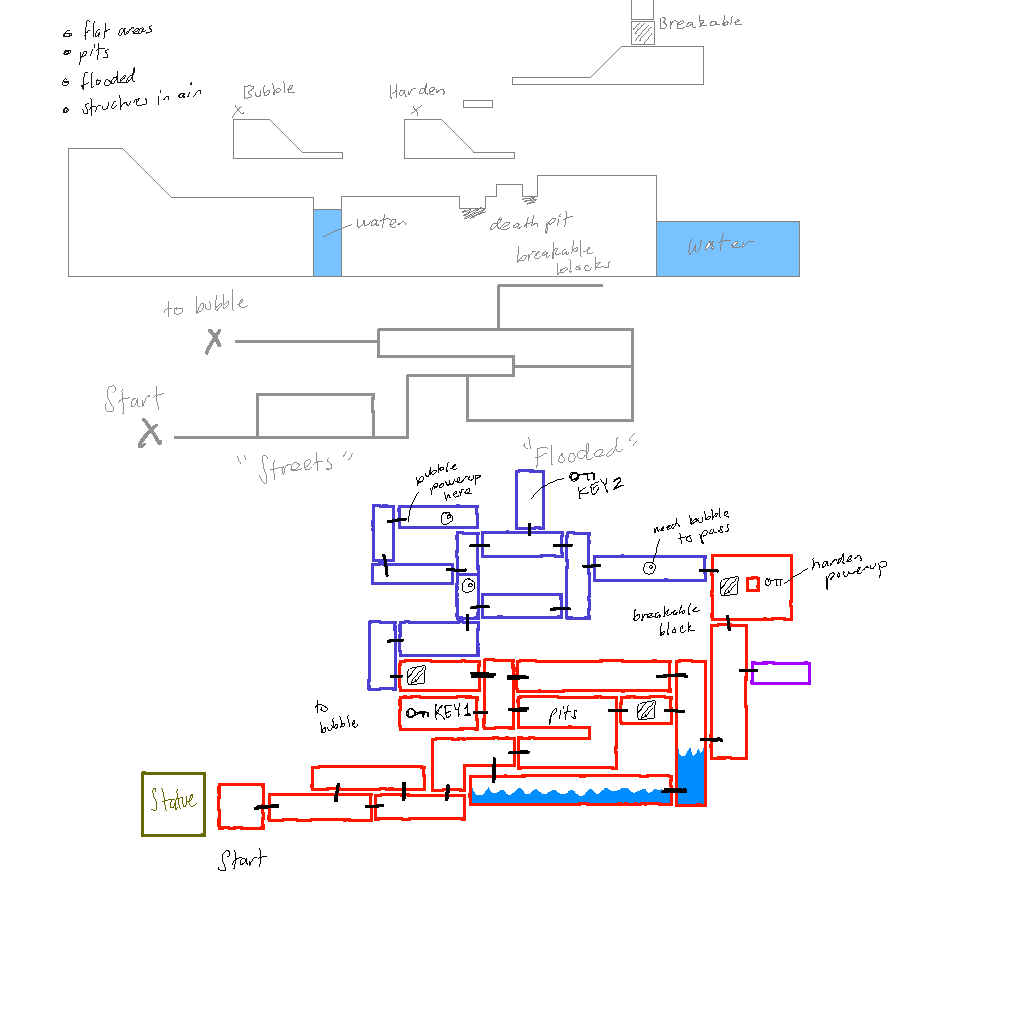 flat areas
pits
flooded
structures in air
Breakable
Bubble
X
Harden
X
water
death pit
breakable
blocks
Water
to bubble
X
Start
X
"Streets"
"Flooded"
bubble
powerup
here
KEY2
need bubble
to pass
harden
powerup
breakable
block
KEY1
pits
to
bubble
Statue
Start